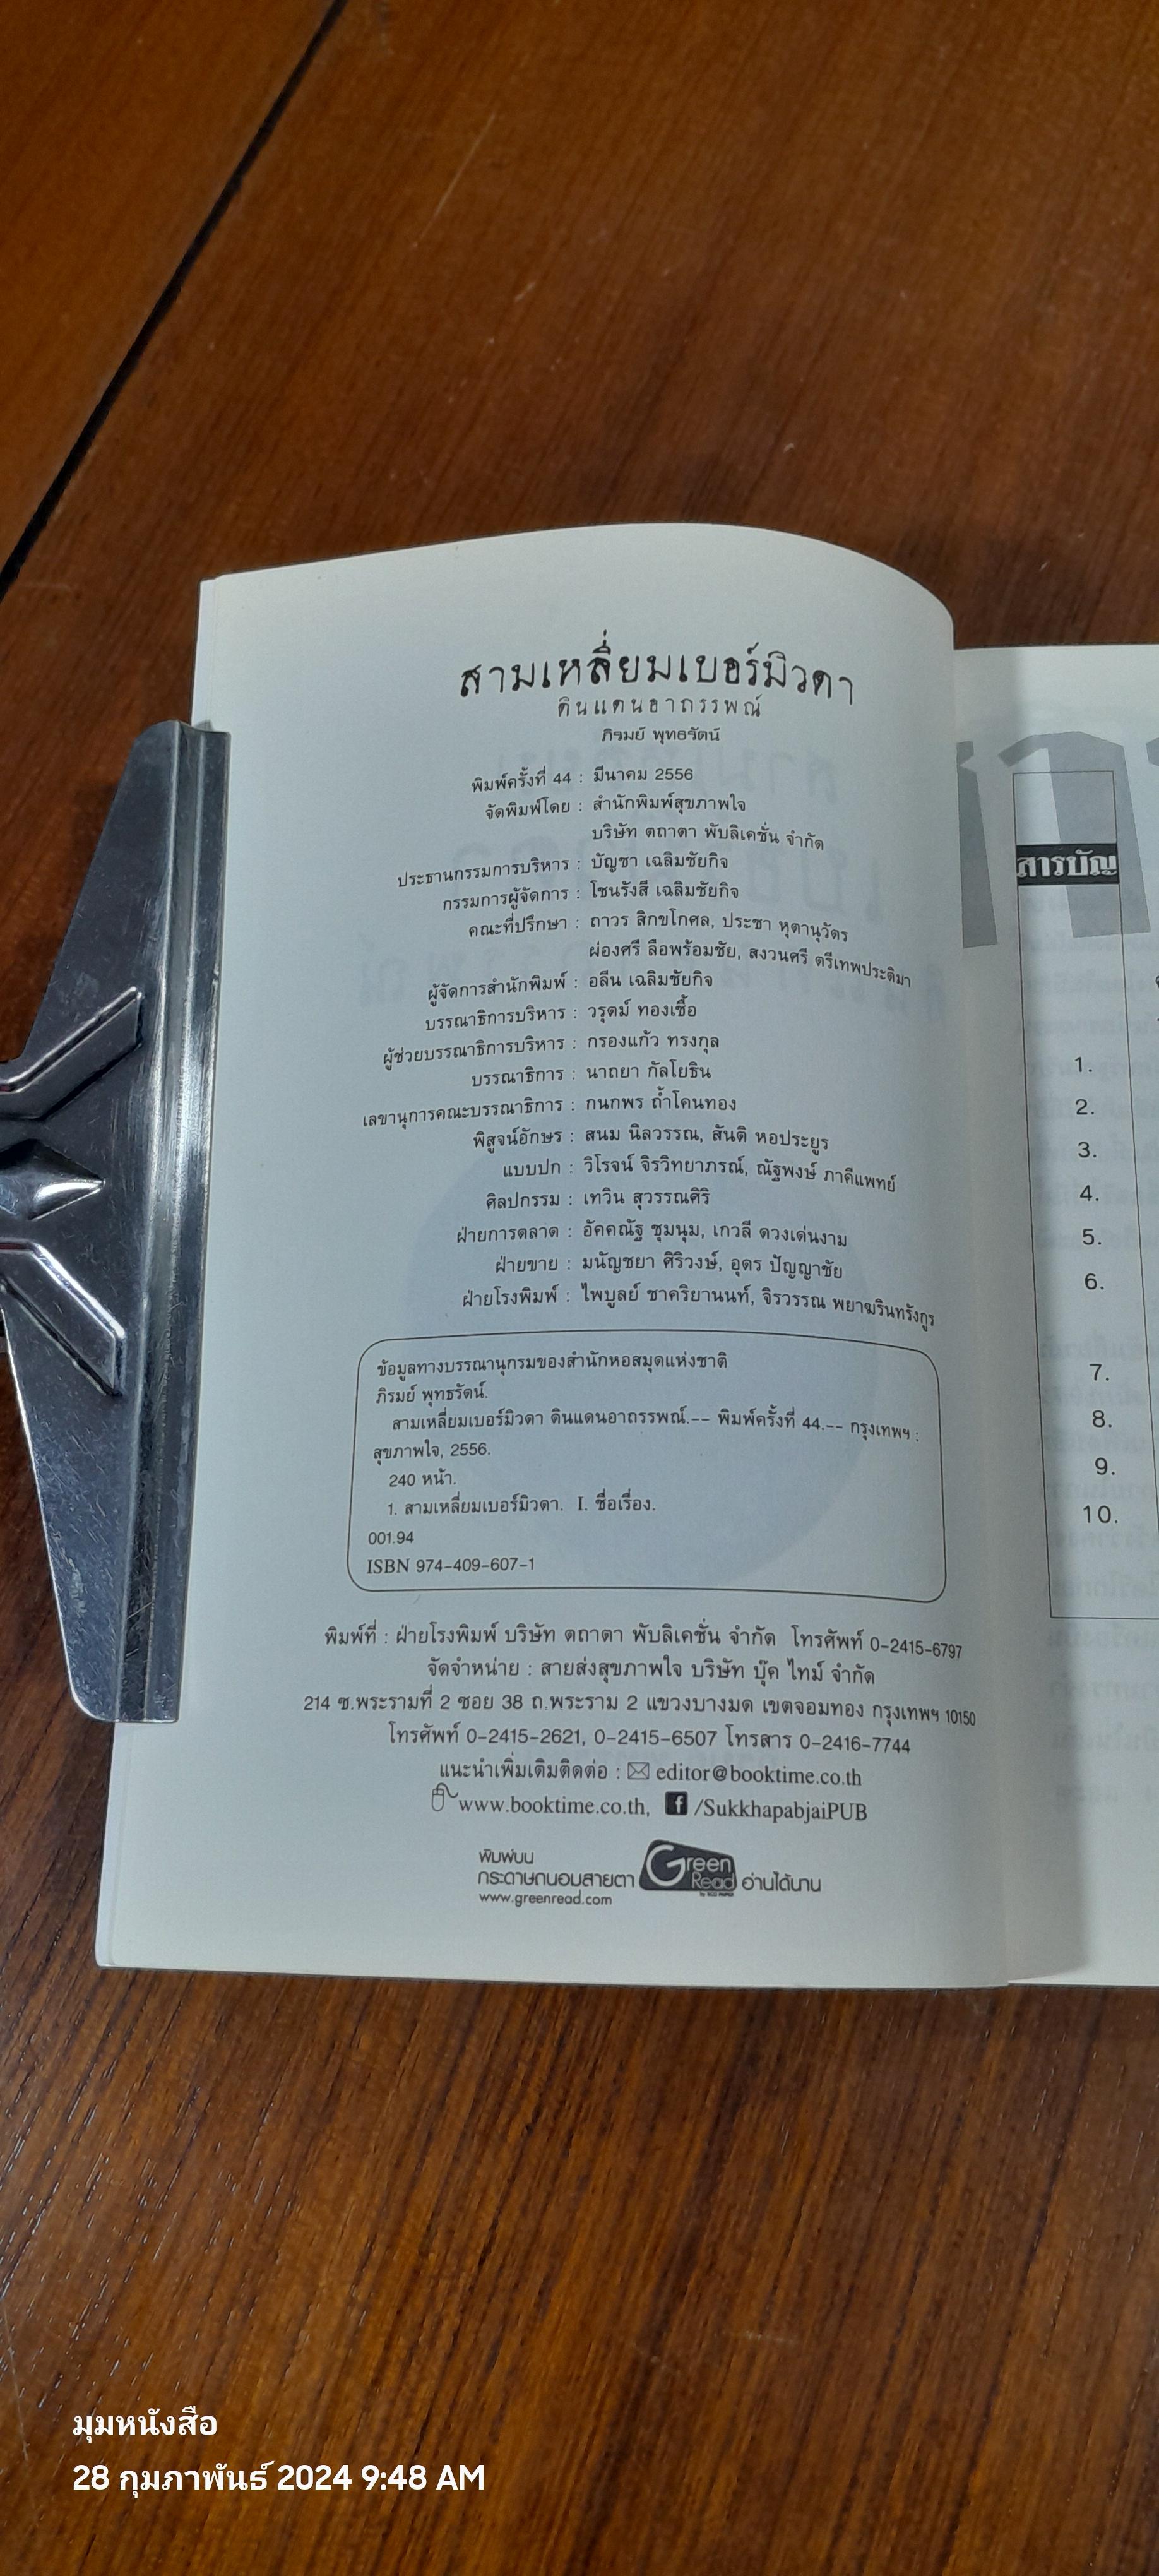 สามเหลี่ยมเบอร์มิวดา
ดินแดนอาถรรพณ์
ภิรมย์ พุทธรัตน์
พิมพ์ครั้งที่ 44 : มีนาคม 2556
จัดพิมพ์โดย : สำนักพิมพ์สุขภาพใจ
บริษัท ตถาตา พับลิเคชั่น จำกัด
ประธานกรรมการบริหาร : บัญชา เฉลิมชัยกิจ
กรรมการผู้จัดการ : โชนรังสี เฉลิมชัยกิจ
คณะที่ปรึกษา : ถาวร สิกขโกศล, ประชา หุตานุวัตร
ผ่องศรี ลือพร้อมชัย, สงวนศรี ตรีเทพประติมา
ผู้จัดการสำนักพิมพ์ : อลีน เฉลิมชัยกิจ
บรรณาธิการบริหาร : วรุตม์ ทองเชื้อ
ผู้ช่วยบรรณาธิการบริหาร : กรองแก้ว ทรงกุล
บรรณาธิการ : นาถยา กัลโยธิน
เลขานุการคณะบรรณาธิการ : กนกพร ถ้ำโคนทอง
พิสูจน์อักษร : สนม นิลวรรณ, สันติ หอประยูร
แบบปก : วิโรจน์ จิรวิทยาภรณ์, ณัฐพงษ์ ภาคีแพทย์
ศิลปกรรม : เทวิน สุวรรณศิริ
ฝ่ายการตลาด : อัคคณัฐ ชุมนุม, เกวลี ดวงเด่นงาม
ฝ่ายขาย : มนัญชยา ศิริวงษ์, อุดร ปัญญาชัย
ฝ่ายโรงพิมพ์ : ไพบูลย์ ชาคริยานนท์, จิรวรรณ พยาฆรินทรังกูร
ข้อมูลทางบรรณานุกรมของสำนักหอสมุดแห่งชาติ
ภิรมย์ พุทธรัตน์.
สามเหลี่ยมเบอร์มิวดา ดินแดนอาถรรพณ์.-- พิมพ์ครั้งที่ 44.-- กรุงเทพฯ :
สุขภาพใจ, 2556.
240 หน้า.
1. สามเหลี่ยมเบอร์มิวดา. I. ชื่อเรื่อง.
001.94
ISBN 974-409-607-1
พิมพ์ที่ : ฝ่ายโรงพิมพ์ บริษัท ตถาตา พับลิเคชั่น จำกัด โทรศัพท์ 0-2415-6797
จัดจำหน่าย : สายส่งสุขภาพใจ บริษัท บุ๊ค ไทม์ จำกัด
214 ซ.พระรามที่ 2 ซอย 38 ถ.พระราม 2 แขวงบางมด เขตจอมทอง กรุงเทพฯ 10150
โทรศัพท์ 0-2415-2621, 0-2415-6507 โทรสาร 0-2416-7744
แนะนำเพิ่มเติมติดต่อ : editor@booktime.co.th
www.booktime.co.th, f /SukkhapabjaiPUB
พิมพ์บน
กระดาษถนอมสายตา Green Read อ่านได้นาน
www.greenread.com
สารบัญ
1.
2.
3.
4.
5.
6.
7.
8.
9.
10.
มุมหนังสือ
28 กุมภาพันธ์ 2024 9:48 AM